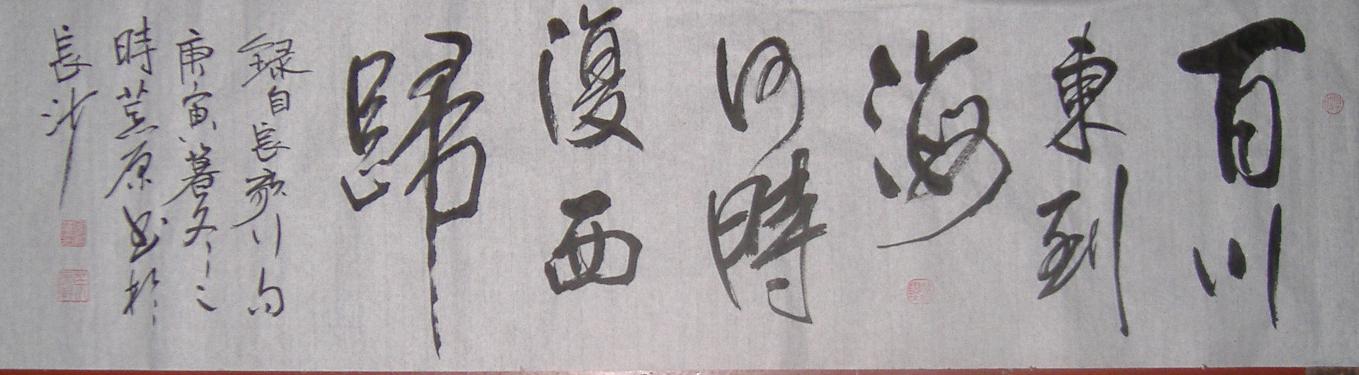 百川
東到
海
何時
復西
歸
録自長歌行句
庚寅暮冬之
時荒原书於
長沙